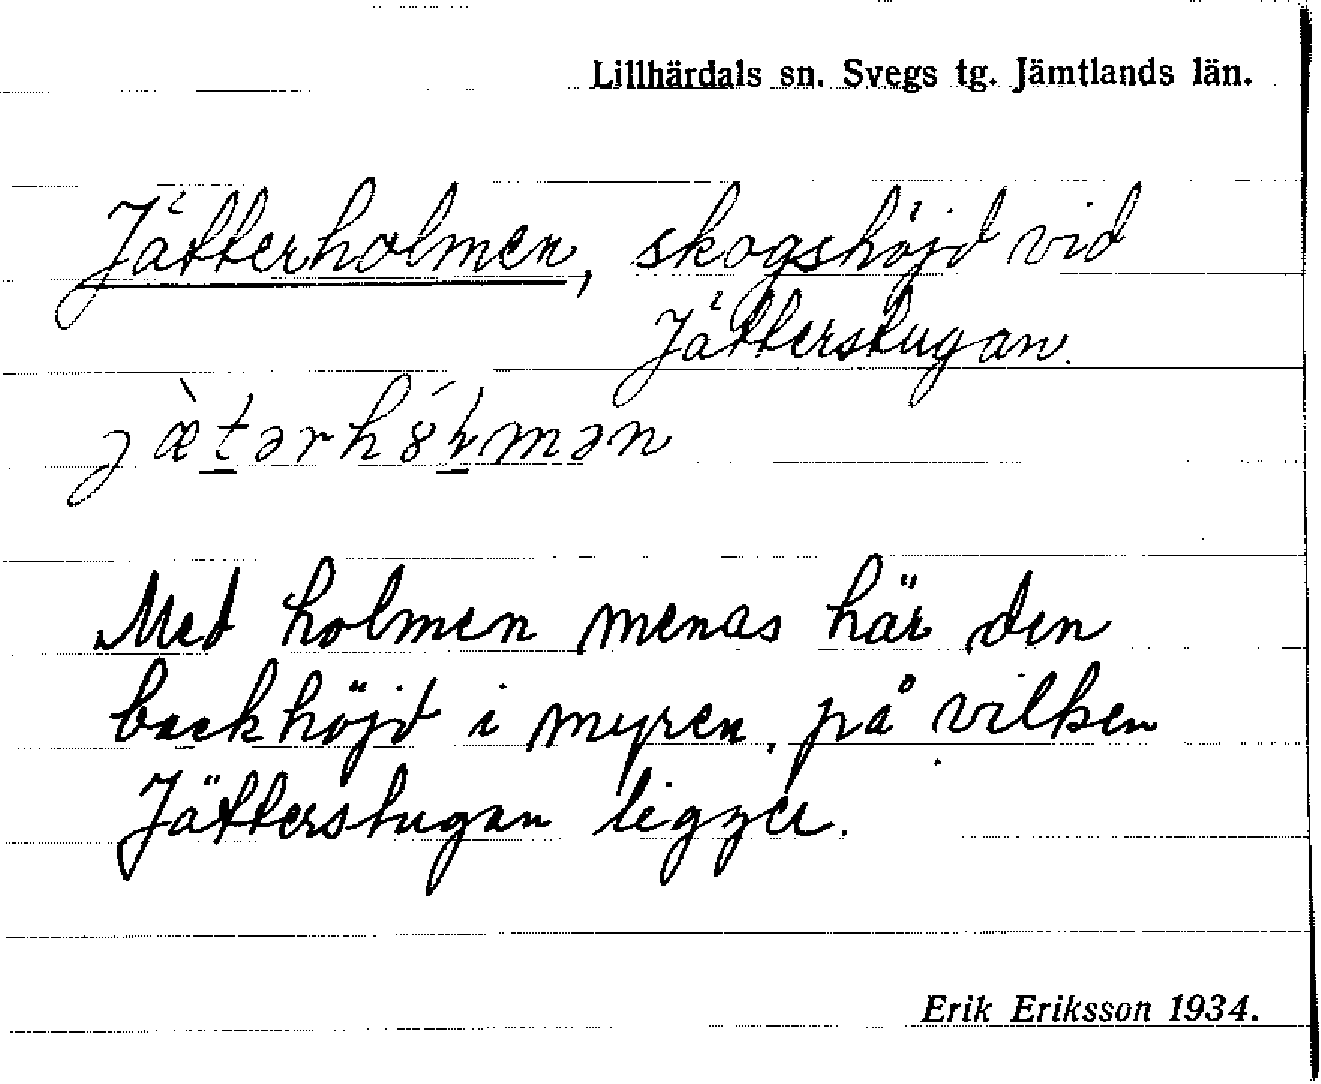 Lillhärdals sn. Svegs tg. Jämtlands län.
Jätterholmen, skogshöjd vid
Jätterstugan.
Med holmen menas här den
backhöjd i myren, på vilken
Jätterstugan ligger.
Erik Eriksson 1934.